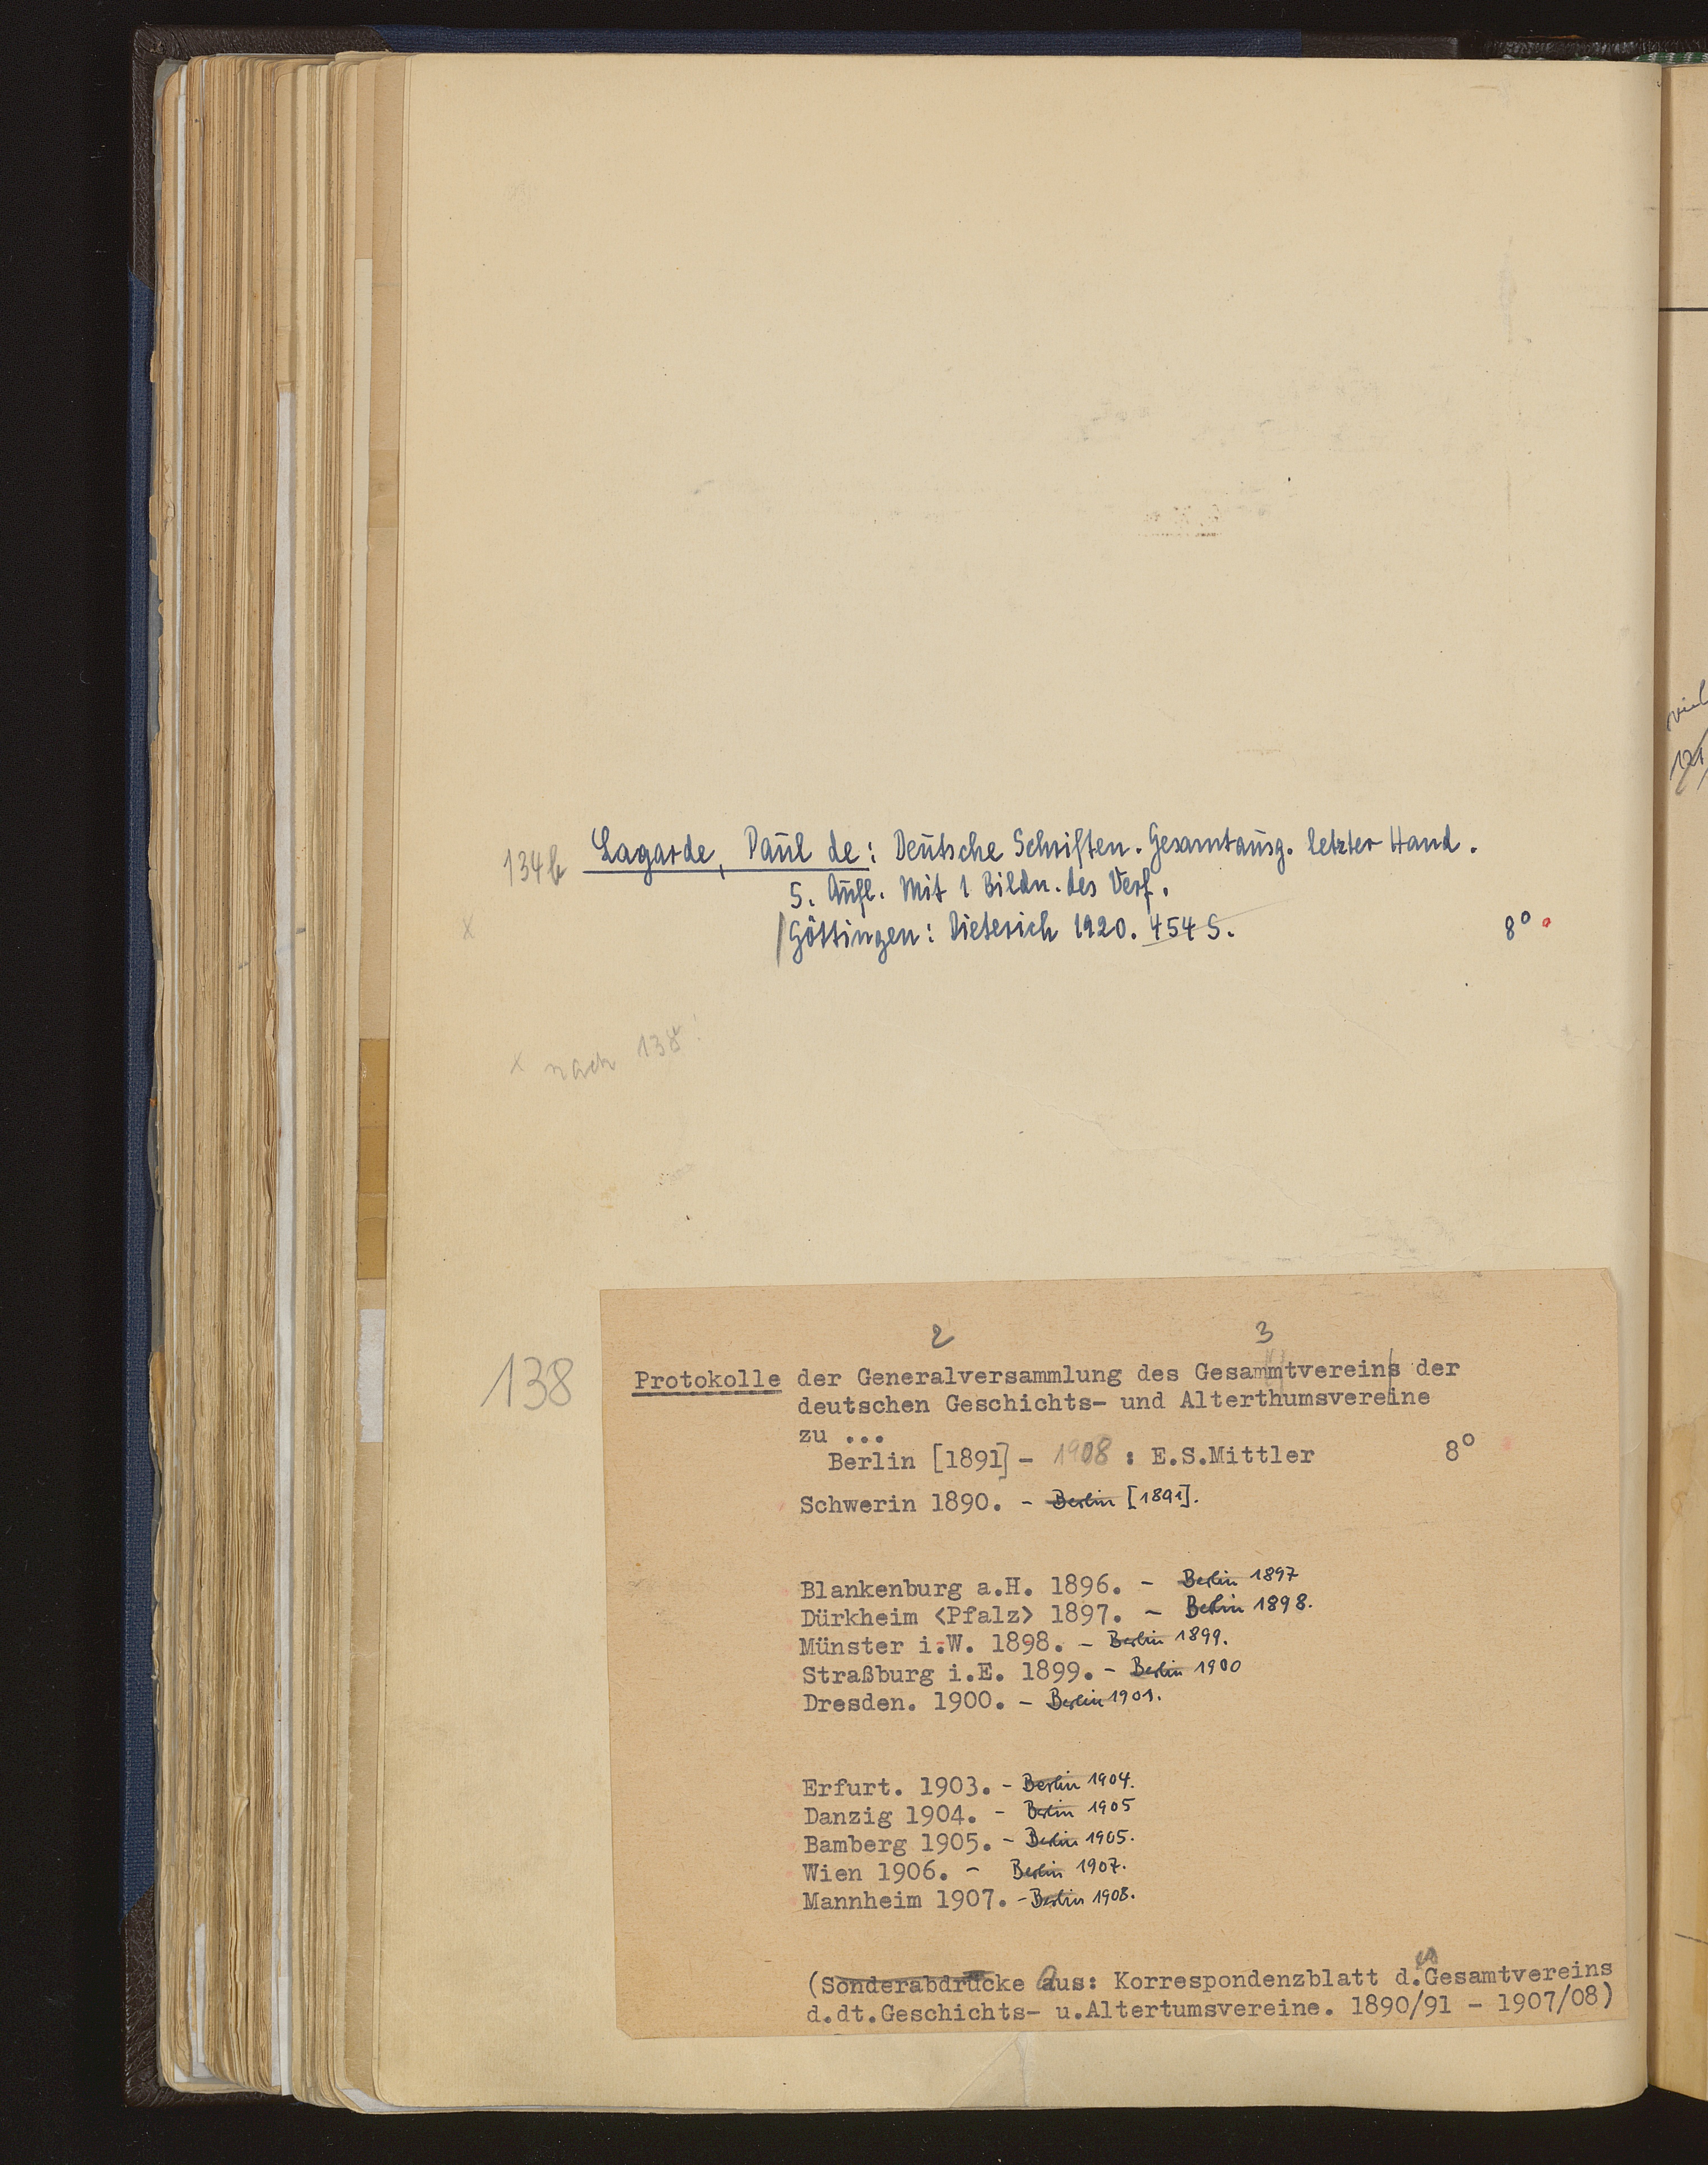 134b Lagarde, Paul de: Deutsche Schriften. Gesamtausg. letzter Hand.
5. Aufl. Mit 1 Bildn. des Verf.
x /Göttingen: Dieterich 1920. 454 S. 8°
x nach 138!
2 3
138 Protokolle der Generalversammlung des Gesammtvereins der
deutschen Geschichts- und Alterthumsvereine
zu ...
Berlin [1891] - 1908 : E.S.Mittler 8°
Schwerin 1890. - Berlin [1891].
Blankenburg a.H. 1896. - Berlin 1897
Dürkheim <Pfalz> 1897. - Berlin 1898.
Münster i.W. 1898. - Berlin 1899.
Straßburg i.E. 1899. - Berlin 1900
Dresden. 1900. - Berlin 1901.
Erfurt. 1903. - Berlin 1904.
Danzig 1904. - Berlin 1905
Bamberg 1905. - Berlin 1905.
Wien 1906. - Berlin 1907.
Mannheim 1907. - Berlin 1908.
(Sonderabdrucke Aus: Korrespondenzblatt d.Gesamtvereins
d.dt.Geschichts- u.Altertumsvereine. 1890/91 - 1907/08)